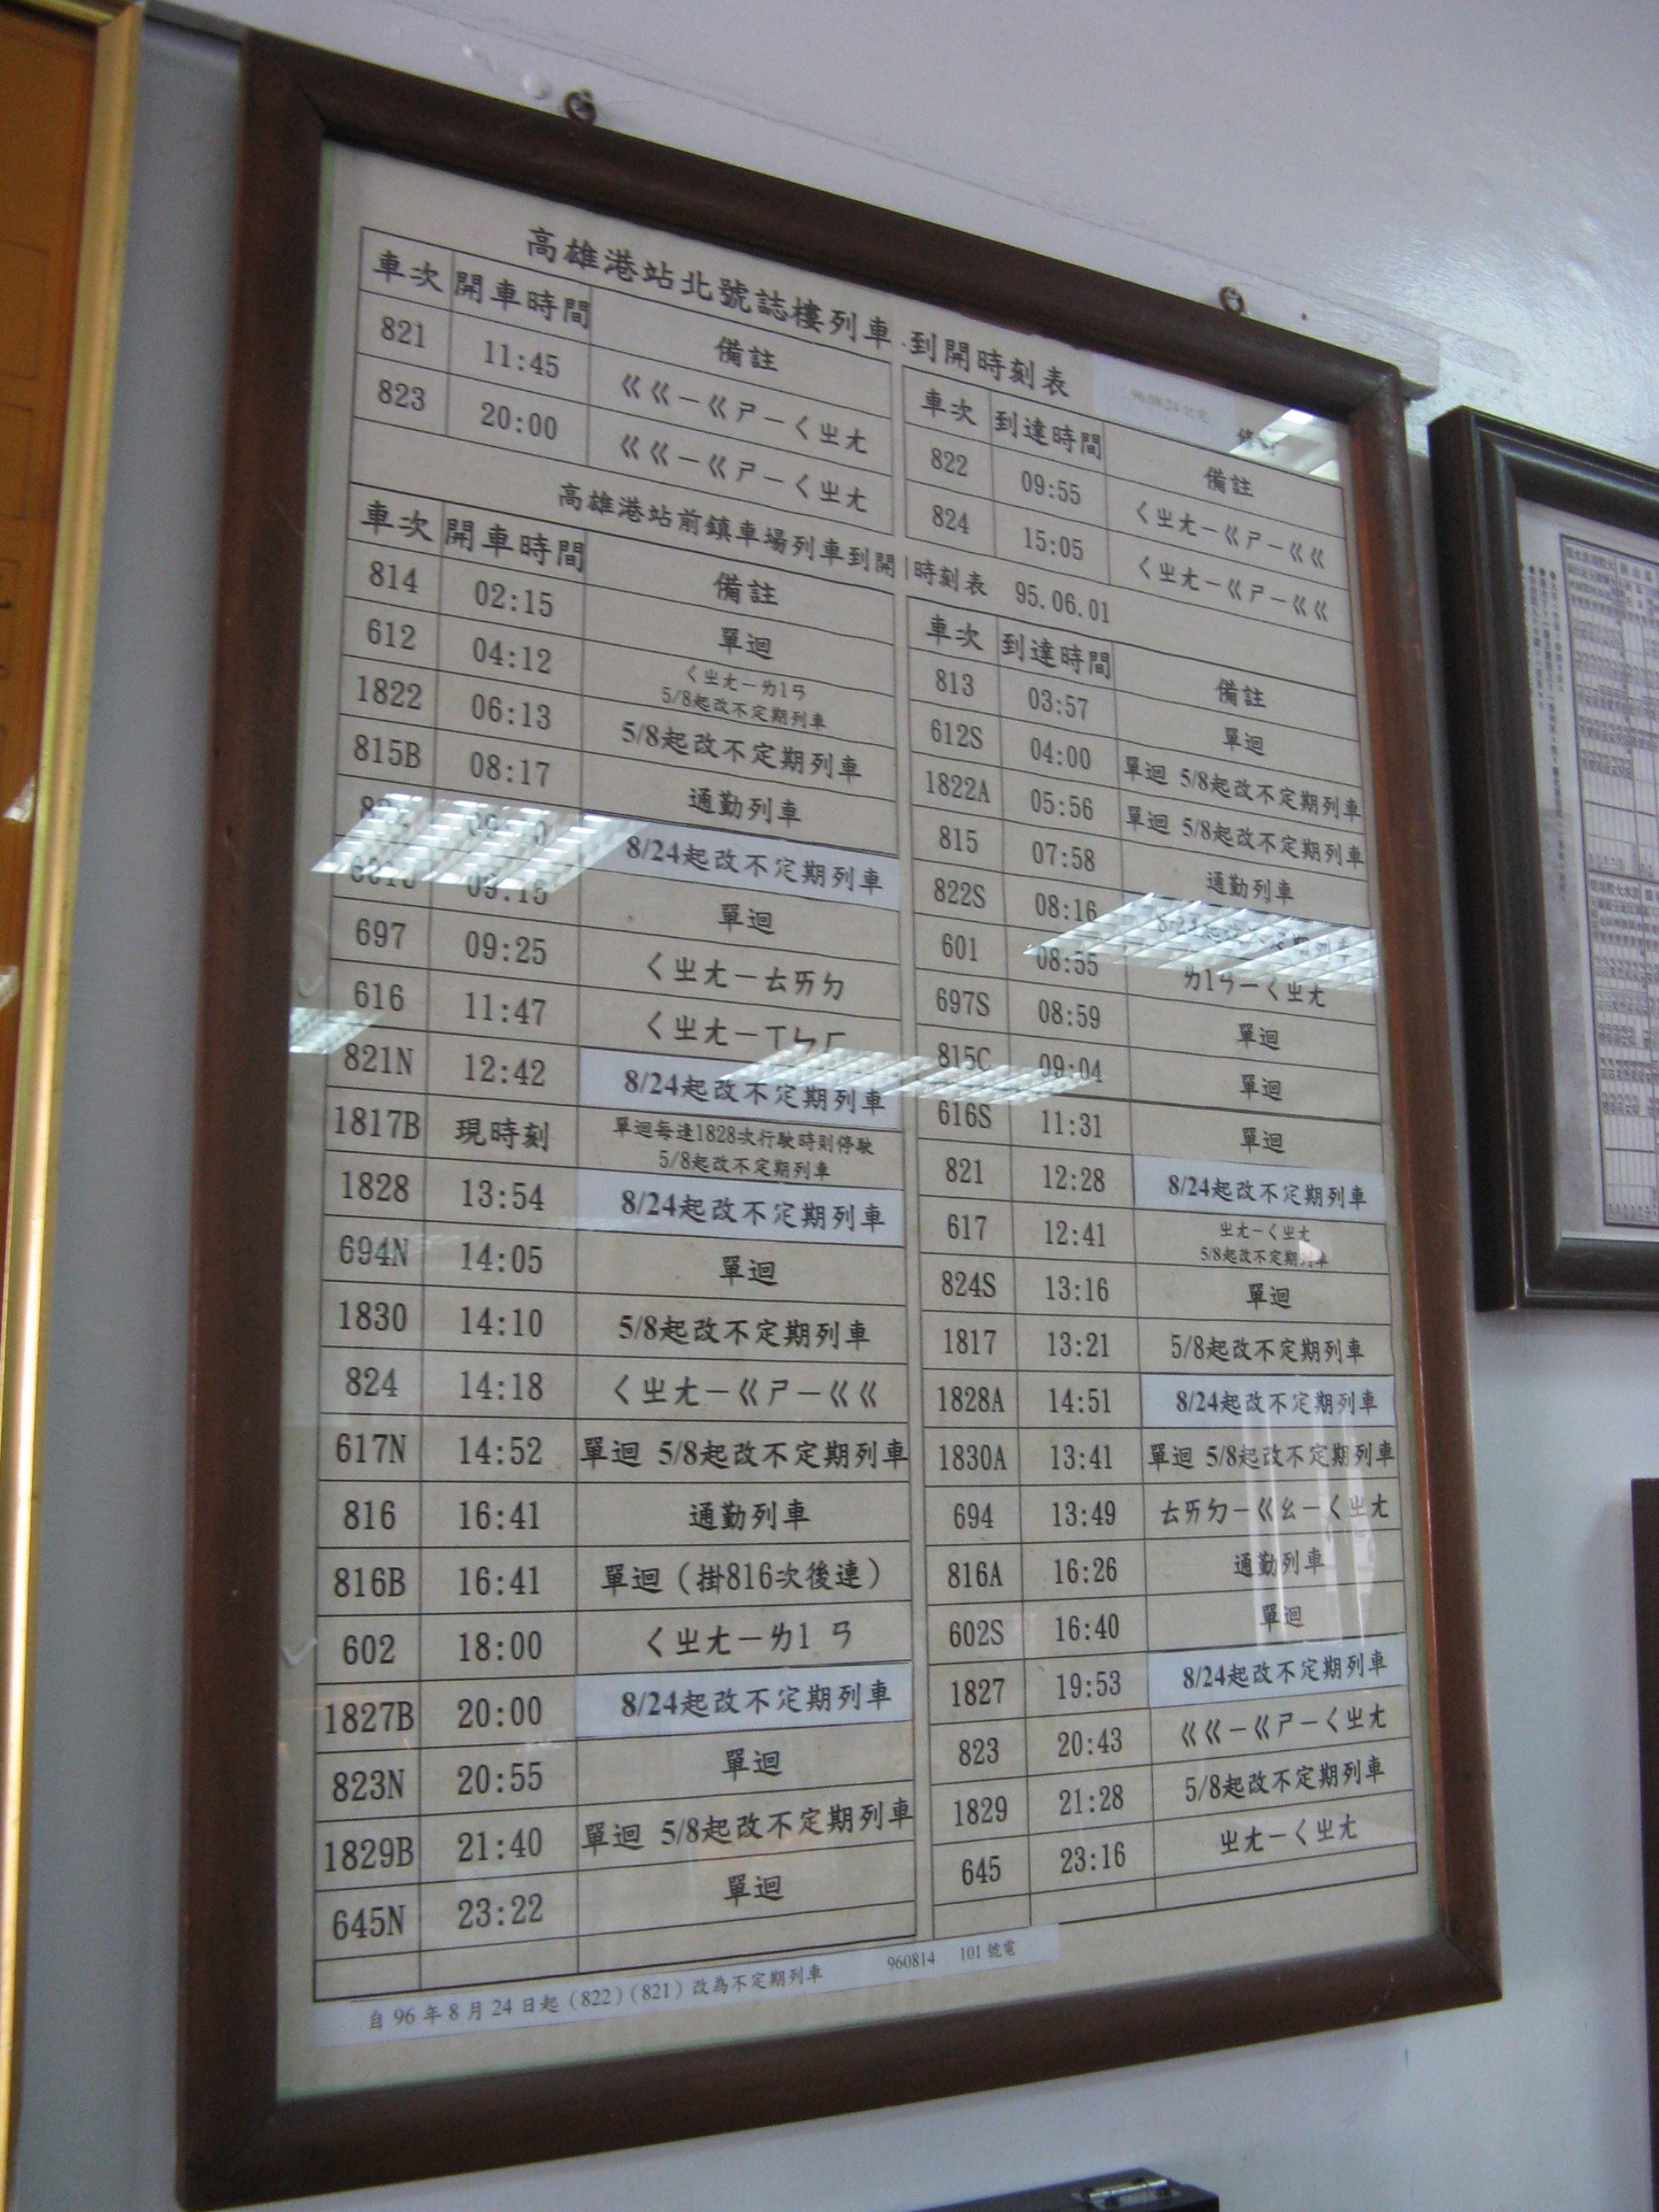 高雄港站北號誌樓列車到開時刻表
車次 開車時間 備註
821 11:45 ㄍㄍ－ㄍㄕ－ㄑㄓㄤ
823 20:00 ㄍㄍ－ㄍㄕ－ㄑㄓㄤ
車次 到達時間 備註
822 09:55 ㄑㄓㄤ－ㄍㄕ－ㄍㄍ
824 15:05 ㄑㄓㄤ－ㄍㄕ－ㄍㄍ
高雄港站前鎮車場列車到開時刻表 95.06.01
車次 開車時間 備註
814 02:15 單迴
612 04:12 ㄑㄓㄤ－ㄌ1ㄢ
5/8起改不定期列車
1822 06:13 5/8起改不定期列車
815B 08:17 通勤列車
8/24起改不定期列車
09:15 單迴
697 09:25 ㄑㄓㄤ－ㄊㄞㄉ
616 11:47 ㄑㄓㄤ－ㄒㄣㄏ
821N 12:42 8/24起改不定期列車
1817B 現時刻 單迴每逢1828次行駛時則停駛
5/8起改不定期列車
1828 13:54 8/24起改不定期列車
694N 14:05 單迴
1830 14:10 5/8起改不定期列車
824 14:18 ㄑㄓㄤ－ㄍㄕ－ㄍㄍ
617N 14:52 單迴 5/8起改不定期列車
816 16:41 通勤列車
816B 16:41 單迴（掛816次後連）
602 18:00 ㄑㄓㄤ－ㄌ1 ㄢ
1827B 20:00 8/24起改不定期列車
823N 20:55 單迴
1829B 21:40 單迴 5/8起改不定期列車
645N 23:22 單迴
車次 到達時間 備註
813 03:57 單迴
612S 04:00 單迴 5/8起改不定期列車
1822A 05:56 單迴 5/8起改不定期列車
815 07:58 通勤列車
822S 08:16 8/24起改不定期列車
601 08:55 ㄌ1ㄢ－ㄑㄓㄤ
697S 08:59 單迴
815C 09:04 單迴
616S 11:31 單迴
821 12:28 8/24起改不定期列車
617 12:41 ㄓㄤ－ㄑㄓㄤ
5/8起改不定期列車
824S 13:16 單迴
1817 13:21 5/8起改不定期列車
1828A 14:51 8/24起改不定期列車
1830A 13:41 單迴 5/8起改不定期列車
694 13:49 ㄊㄞㄉ－ㄍㄠ－ㄑㄓㄤ
816A 16:26 通勤列車
602S 16:40 單迴
1827 19:53 8/24起改不定期列車
823 20:43 ㄍㄍ－ㄍㄕ－ㄑㄓㄤ
1829 21:28 5/8起改不定期列車
645 23:16 ㄓㄤ－ㄑㄓㄤ
自 96 年 8 月 24 日起（822）（821）改為不定期列車 960814 101 號電